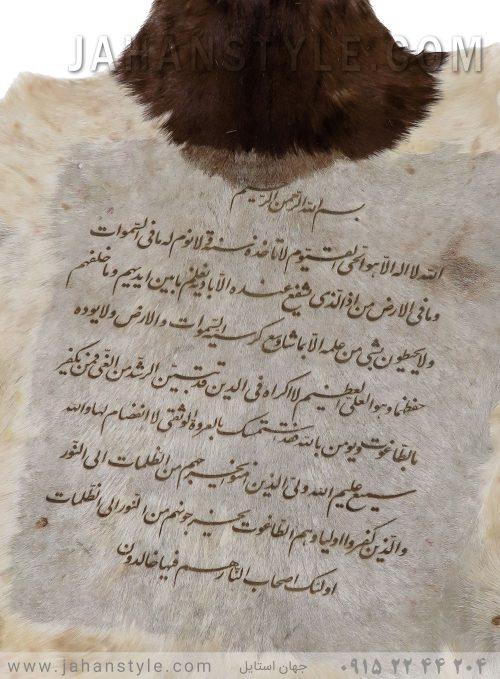 JAHANSTYLE.COM
بسم الله الرحمن الرحیم
الله لا اله الا هو الحی القیوم لا تاخذه سنة و لا نوم له ما فی السموات
وما فی الارض من ذا الذی شفیع عنده الا باذنه یعلم ما بین ایدیهم وما خلفهم
ولا یحیطون بشی من علمه الا بما شاء وسع کرسیه السموات والارض ولا یوده
حفظهما وهو العلی العظیم لا اکراه فی الدین قد تبین الرشد من الغی فمن یکفر
بالطاغوت ویومن بالله فقد استمسک بالعروة الوثقی لا انفصام لها والله
سمیع علیم الله ولی الذین امنوا یخرجهم من الظلمات الی النور
والذین کفروا اولیاوهم الطاغوت یخرجونهم من النور الی الظلمات
اولئک اصحاب النار هم فیها خالدون
www.jahanstyle.com جهان استایل ۰۹۱۵ ۲۲ ۴۴ ۲۰۴